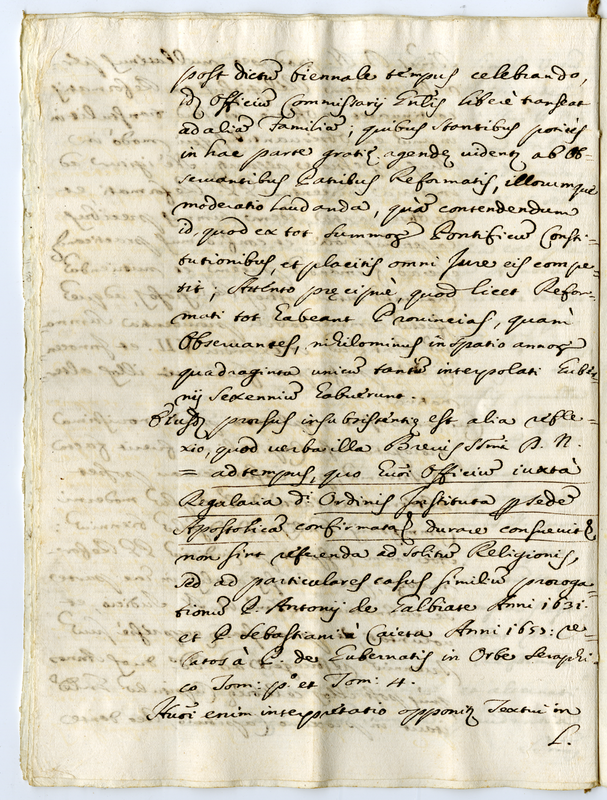 post dictũ biennale tempus celebrando,
idq officiũ Commissarij Gnlis liberè transeat
ad aliã Familiã; quibus stantibus potiùs
in hac parte gratię agendę videntr ab Ob-
servantibus Patribus Reformatis, illorumque
moderatio laudanda, quã contendendum
id, quod ex tot Summor Pontificũ Consti-
tutionibus, et placitis omni Jure eis compe-
tit; Attento pręcipuè, quod licet Refor-
mati tot habeant Provincias, quam
Observantes, nihilominus in spatio annor
quadraginta unicũ tantũ interpolati Guber-
nij Sexennium habuerunt.
Eiusdẽ prorsus insubsistentię est alia refle-
xio, quod verba illa Brevis SSmi D. N.
= ad tempus, quo huõi Officiũ iuxta
Regularia di Ordinis Instituta p sedẽ
Apostolicã confirmata, durare consuevit,
non sint referenda ad solitũ Religionis,
sed ad particulares casus similiũ proroga-
tionũ P. Antonij de Galbiate Anni 1631:
et P. Sebastiani à Caieta Anni 1651: re-
latos à P. de Gubernatis in Orbe Seraphi-
co Tom: po et Tom: 4.
Huõi enim interpretatio opponitr Textui in
L.